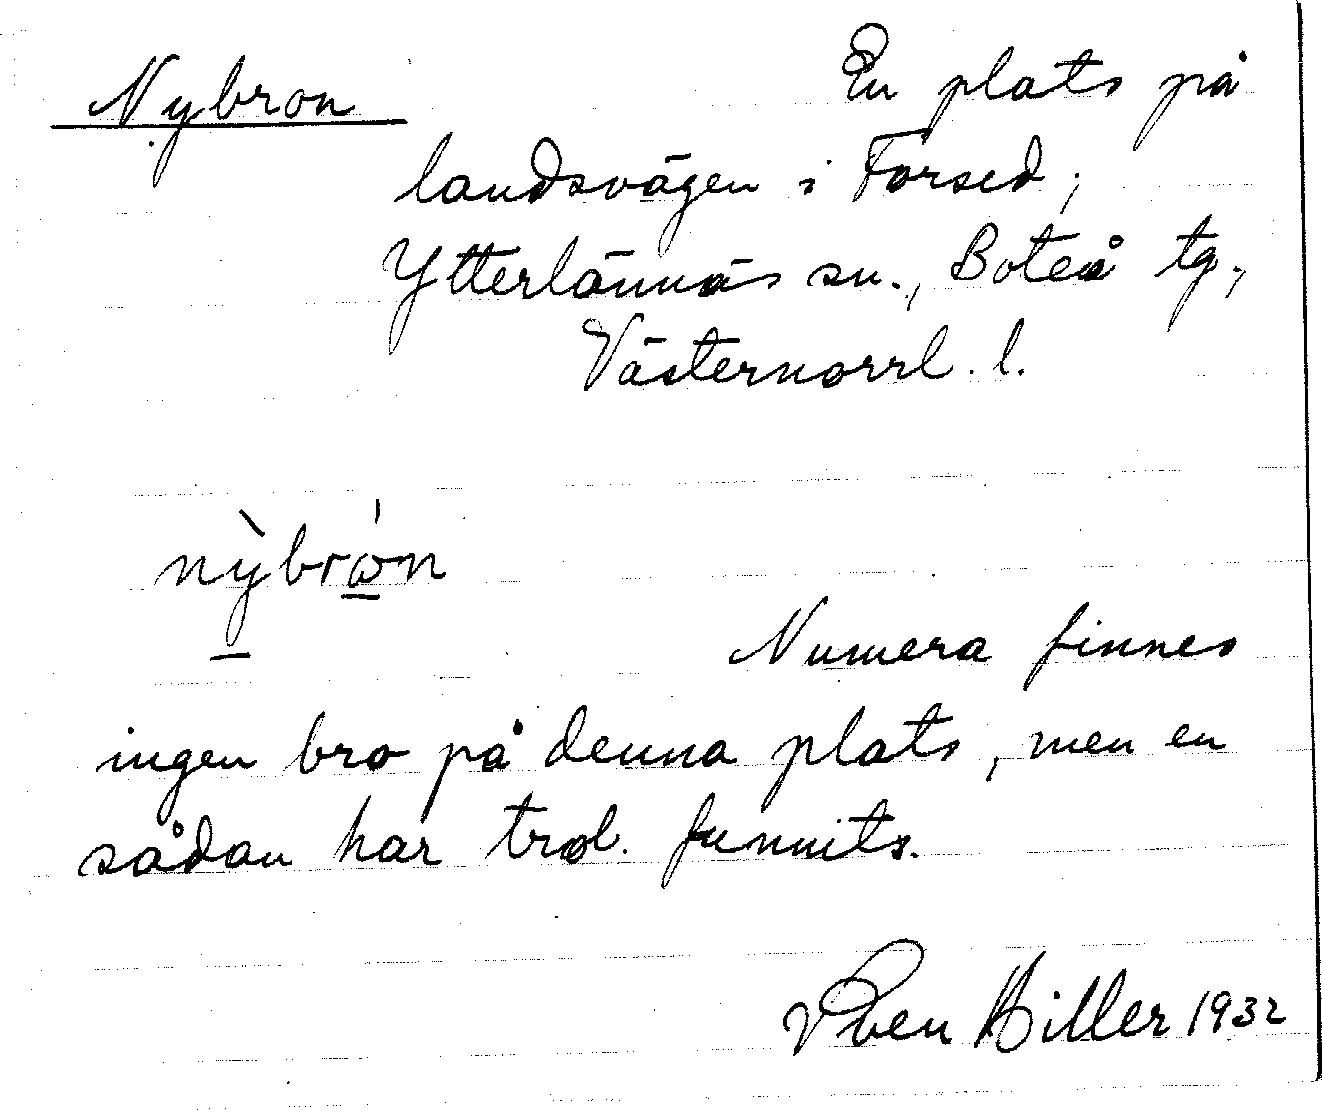 Nybron En plats på
landsvägen i Forsed,
Ytterlännäs sn., Boteå tg,
Västernorrl. l.
nỳbrǿn
Numera finnes
ingen bro på denna plats, men en
sådan har trol. funnits.
Hiller 1932